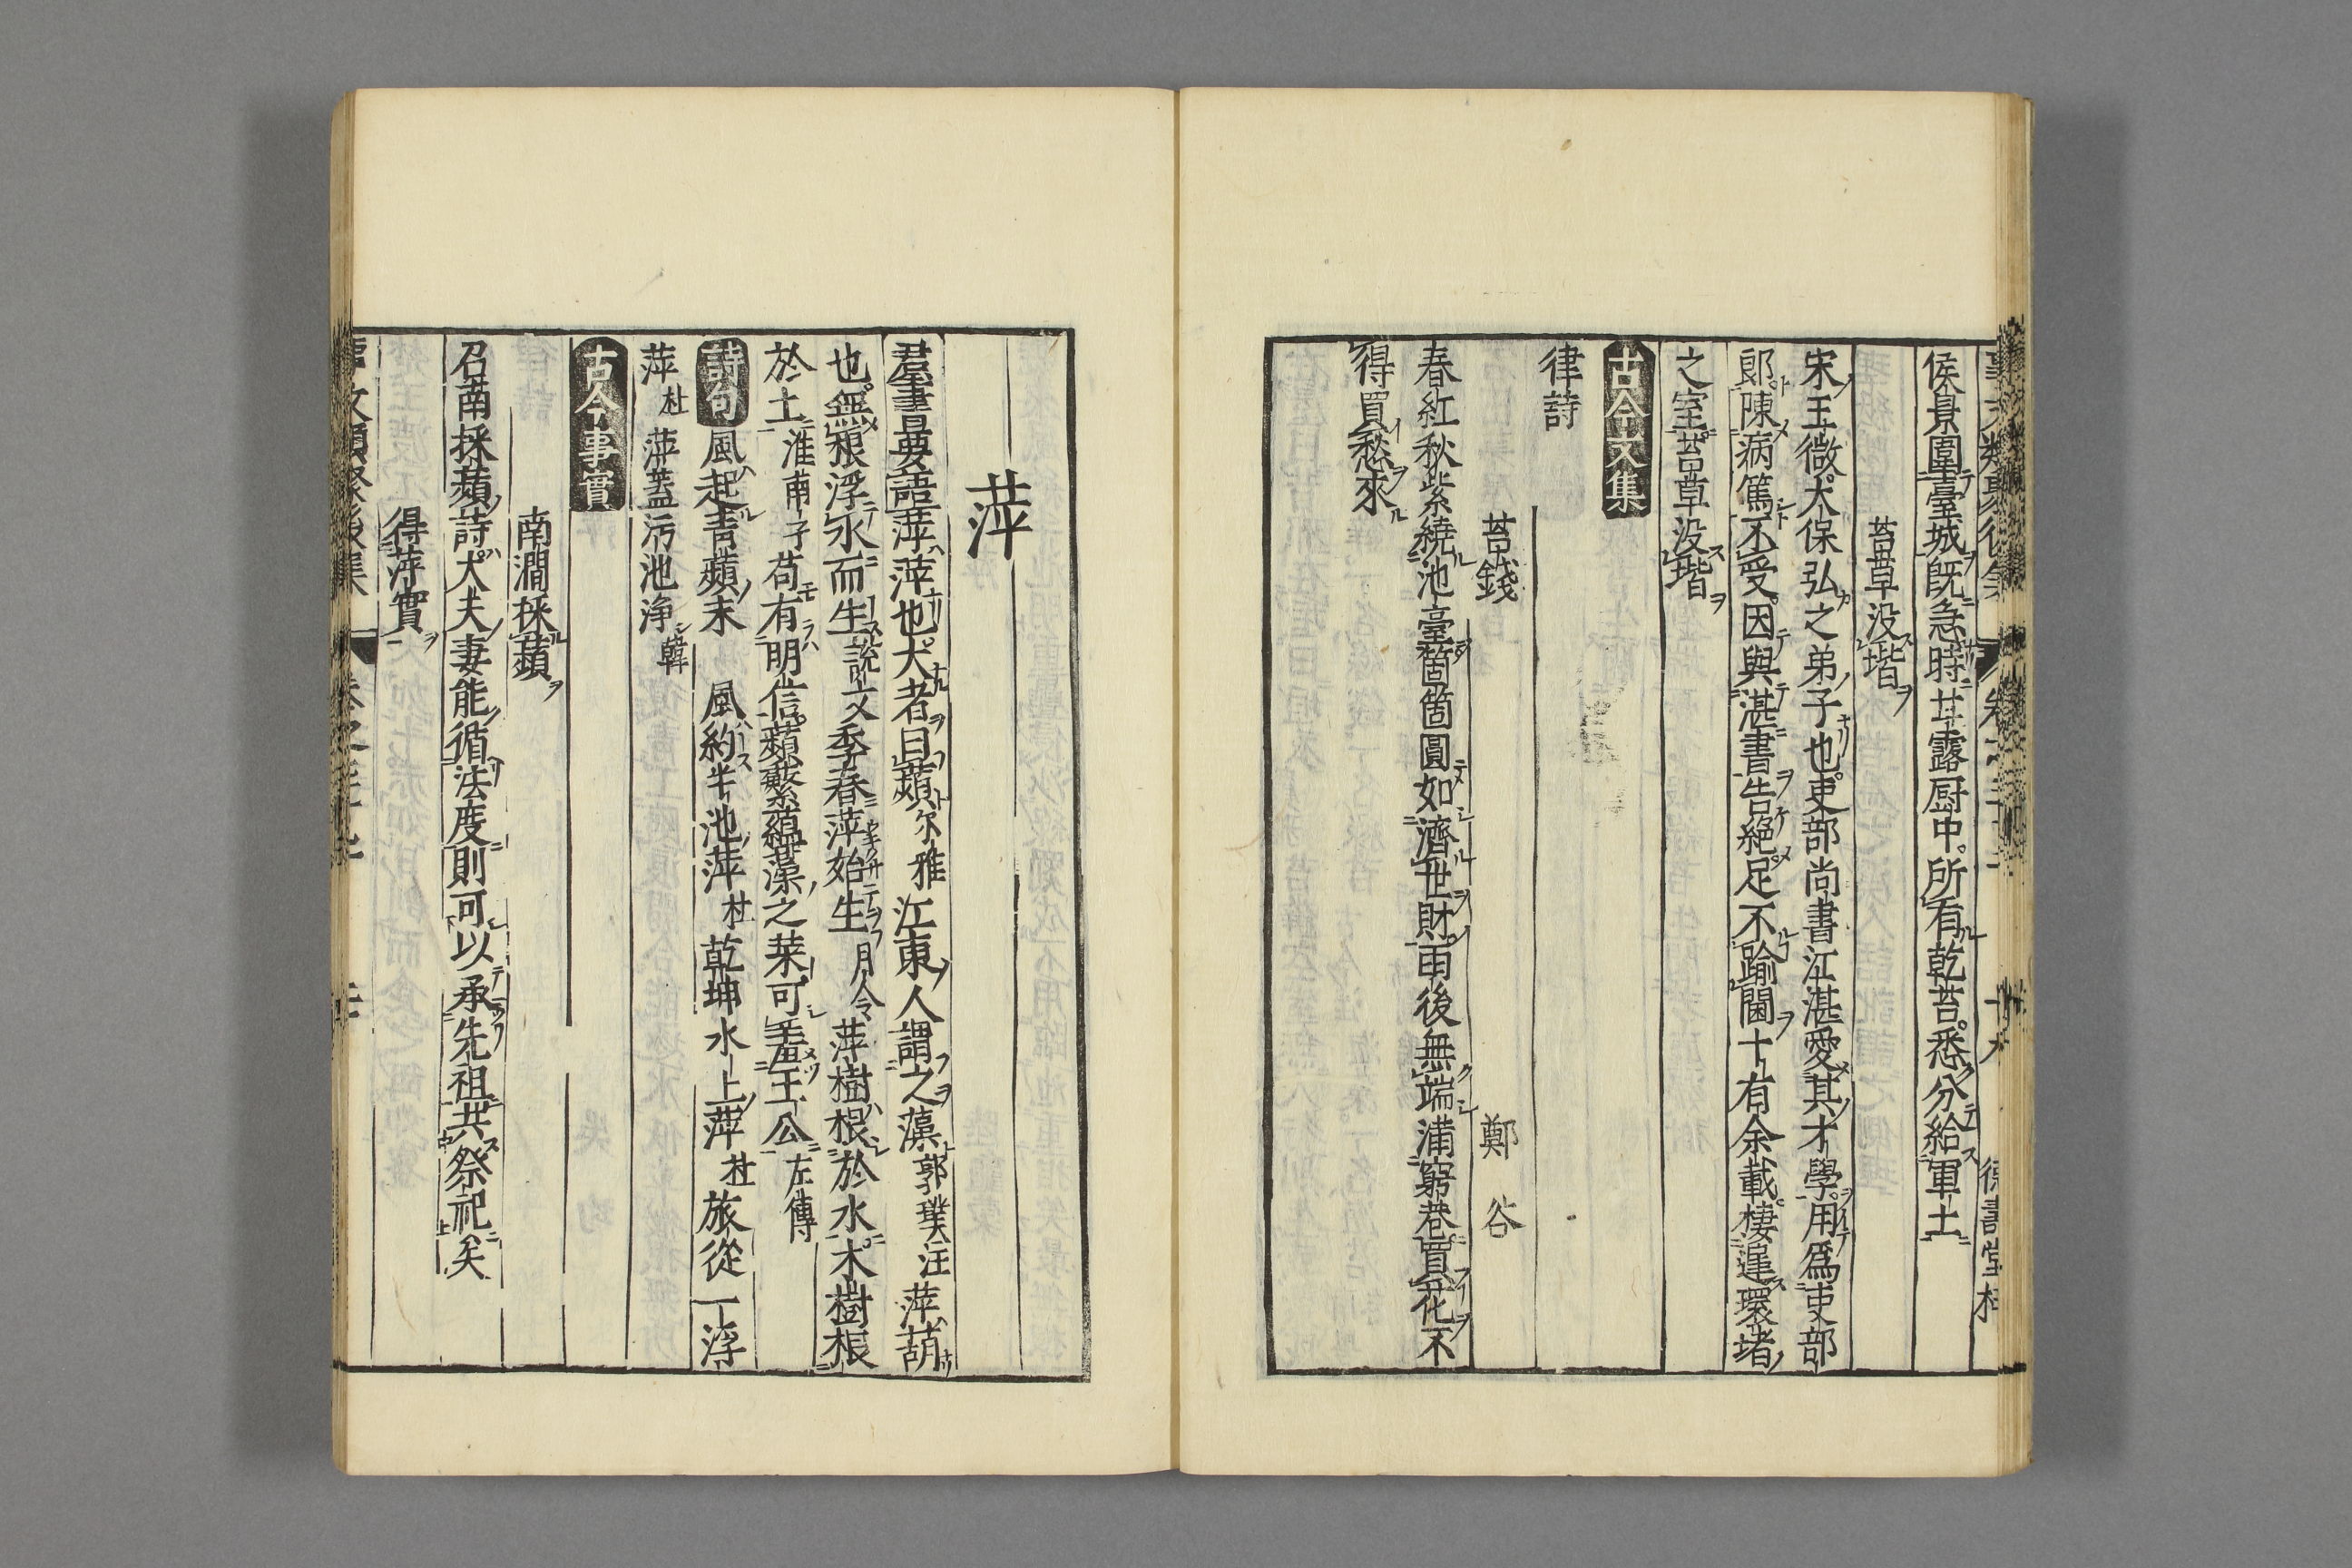 侯景圍臺城既急時甘露厨中所有乾苔悉分給軍士
苔草没堦
宋王微太保弘之弟子也吏部尚書江湛愛其才學用爲吏部
郎陳病篤不受因與湛書告絶足不踰閾十有余載棲遑環堵
之室苔草没堦
古今文集
律詩
苔錢 鄭谷
春紅秋紫繞池臺箇箇圓如濟世財雨後無端滿窮巷買花不
得買愁來
萍
羣書要語萍萍也大者曰蘋尓雅江東人謂之薸郭璞注萍葫
也無根浮水而生說文季春萍始生月令萍樹根於水木樹根
於土淮南子苟有明信蘋蘩蘊藻之菜可羞王公左傳
詩句風起青蘋末 風約半池萍杜乾坤水上萍杜旅從一浮
萍杜萍蓋污池浄韓
古今事實
南澗採蘋
召南採蘋詩大夫妻能循法度則可以承先祖共祭祀矣
得萍實